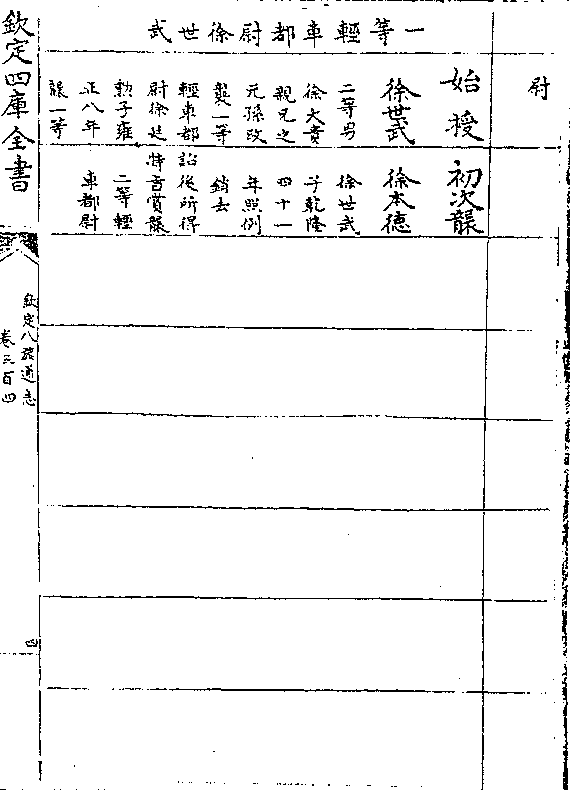 尉
一等輕車都尉徐世武
始授
徐世武
二等男
徐大貴
親兄之
元孫改
襲一等
輕車都
尉徐廷
勲子雍
正八年
襲一等
初次襲
徐本德
徐世武
子乾隆
四十一
年照例
銷去
詔後所得
特旨賞襲
二等輕
車都尉
欽定四庫全書
欽定八旗通志
卷三百四
四